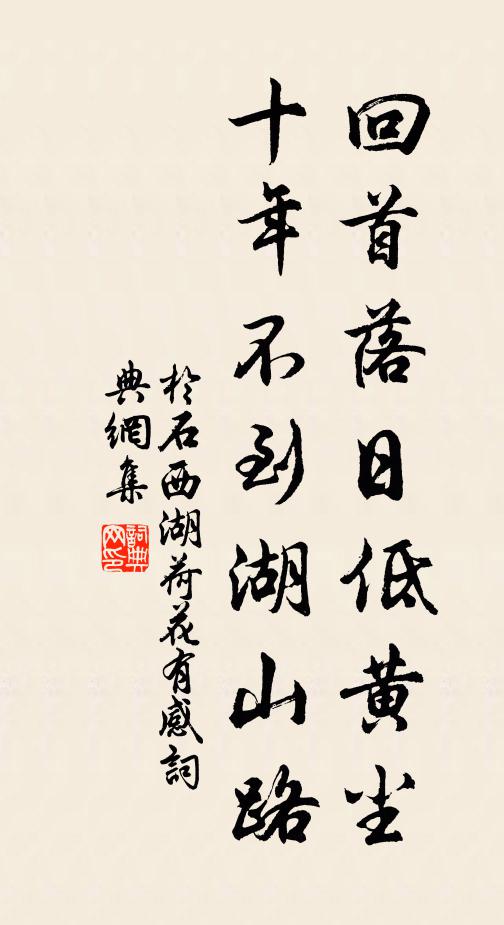 回首落日低黄尘
十年不到湖山路
於石西湖荷花有感詞
典網集
詞典網印